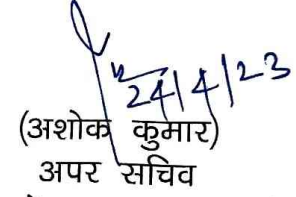 24/4/23
(अशोक कुमार)
अपर सचिव